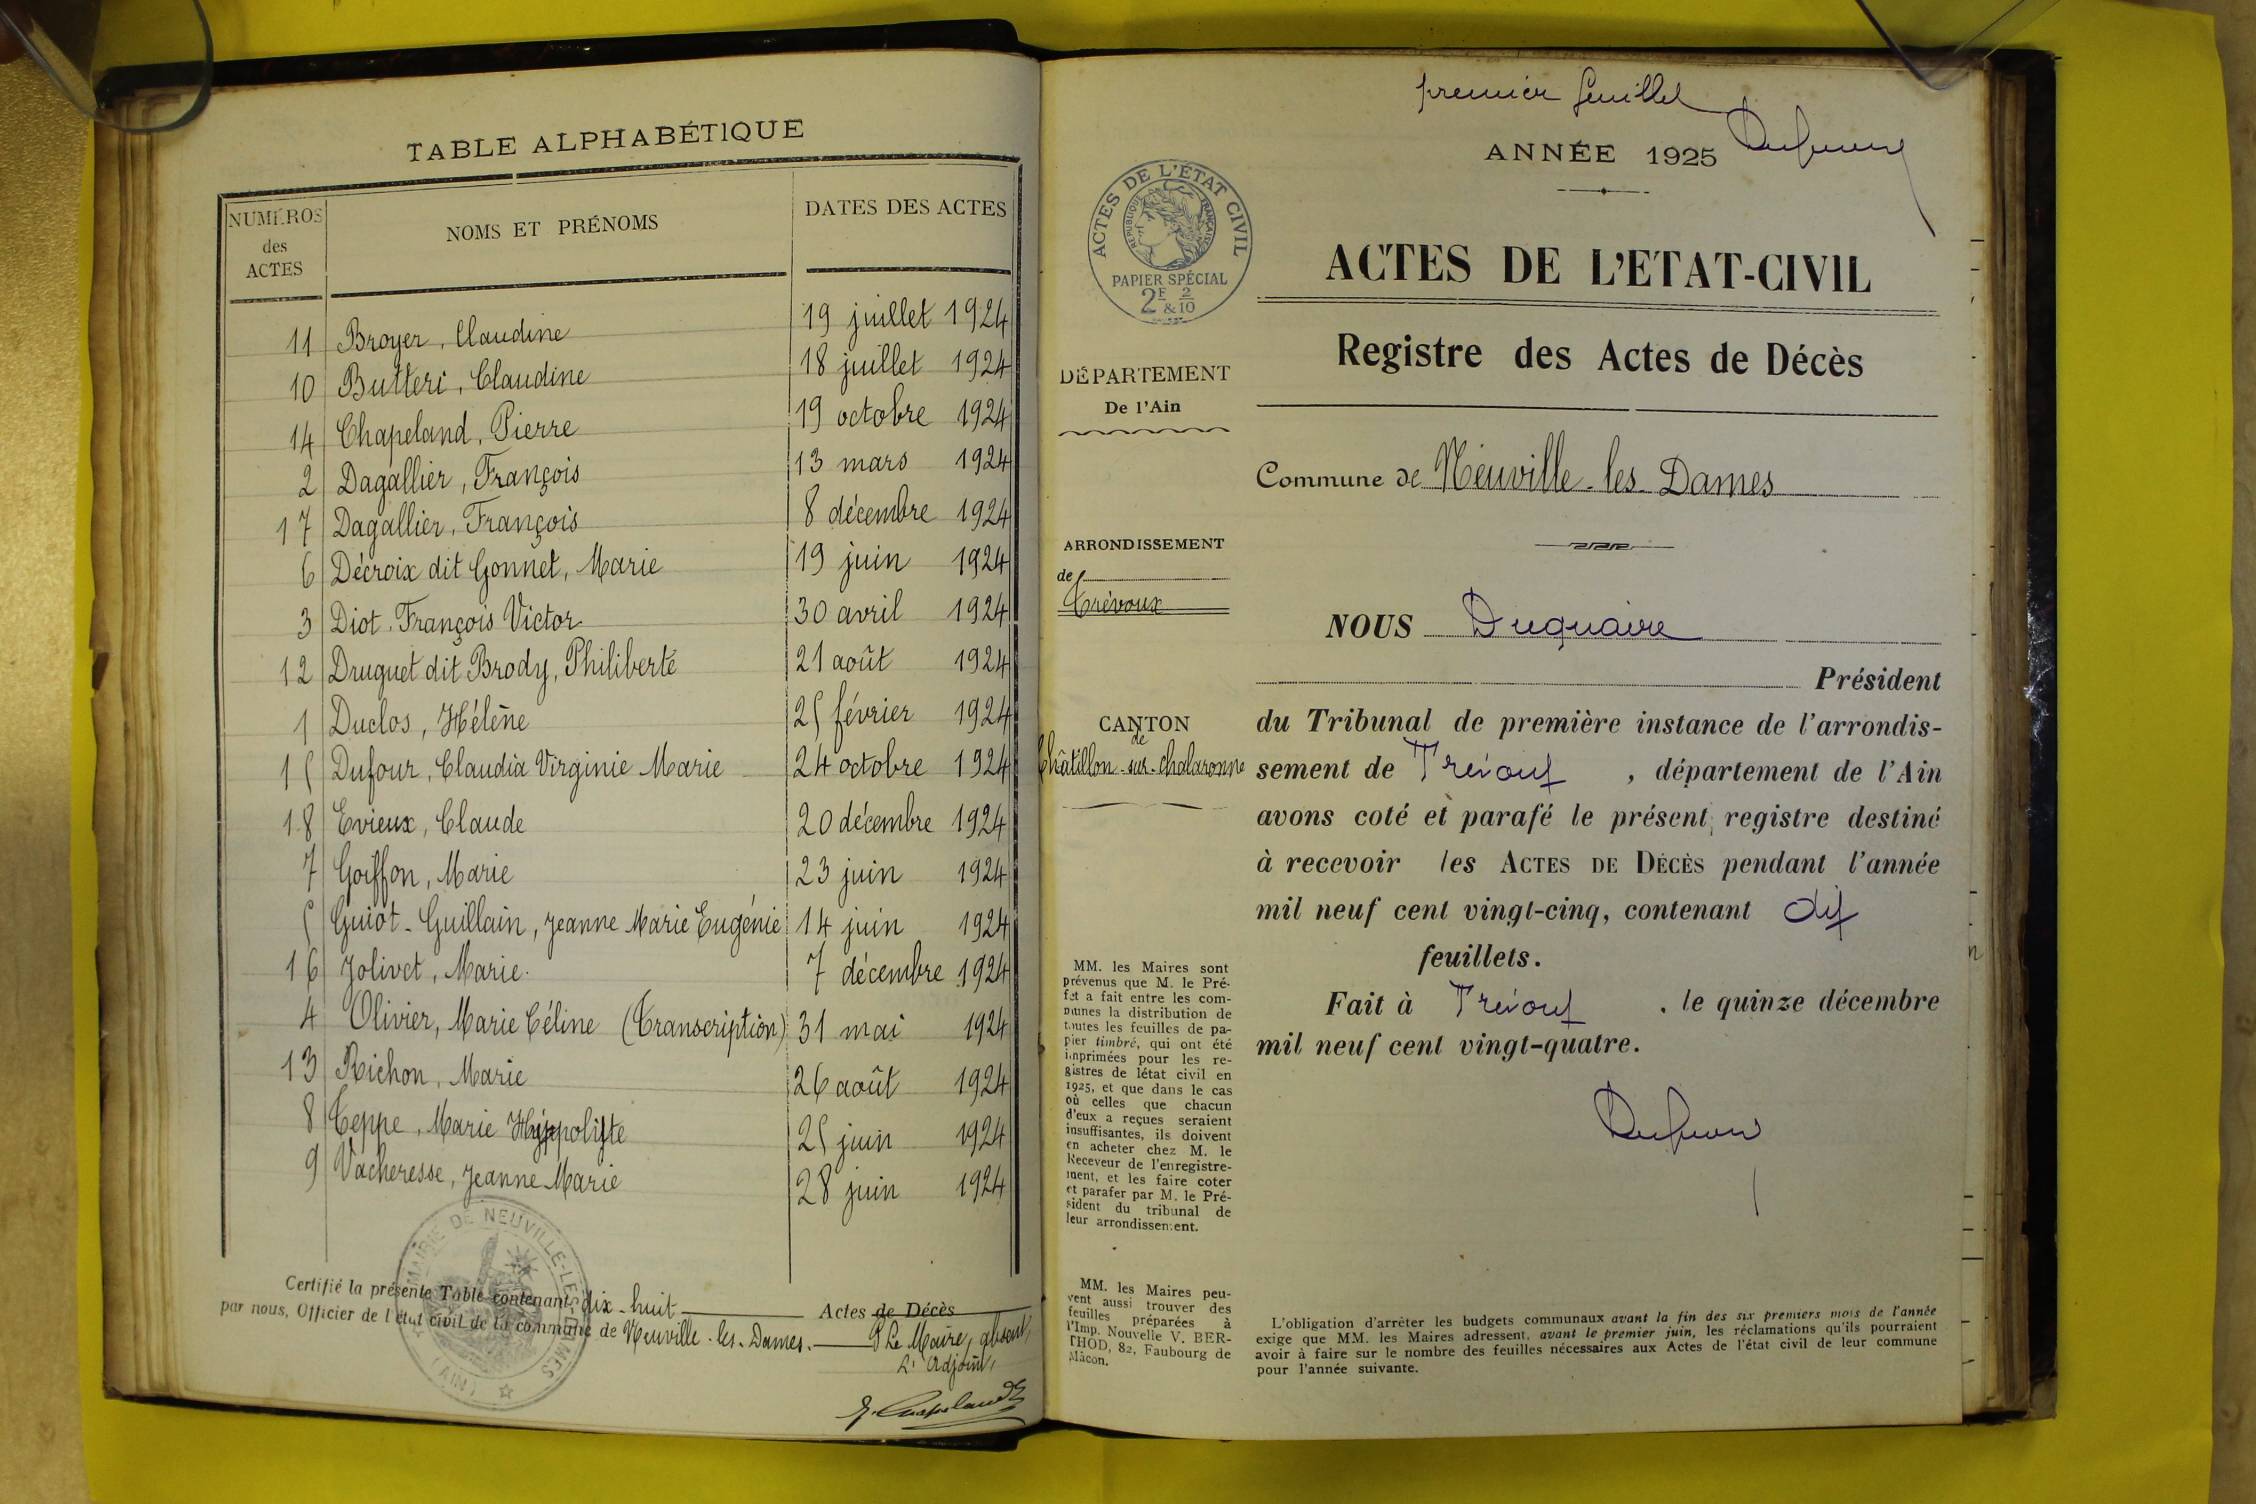 TABLE ALPHABÉTIQUE
NUMÉROS des ACTES NOMS ET PRÉNOMS DATES DES ACTES
11 Broyer, Claudine 19 juillet 1924
10 Butteri, Claudine 18 juillet 1924
14 Chapeland, Pierre 19 octobre 1924
2 Dagallier, François 13 mars 1924
17 Dagallier, François 8 décembre 1924
6 Décroix dit Gonnet, Marie 19 juin 1924
3 Diot, François Victor 30 avril 1924
12 Druguet dit Brody, Philiberte 21 août 1924
1 Duclos, Hélène 25 février 1924
15 Dufour, Claudia Virginie Marie 24 octobre 1924
18 Evieux, Claude 20 décembre 1924
7 Goiffon, Marie 23 juin 1924
5 Guiot-Guillain, Jeanne Marie Eugénie 14 juin 1924
16 Jolivet, Marie. 7 décembre 1924
4 Olivier, Marie Céline (Transcription) 31 mai 1924
13 Richon, Marie 26 août 1924
8 Teppe, Marie Hyppolyte 25 juin 1924
9 Vacheresse, Jeanne Marie 28 juin 1924
MAIRIE DE NEUVILLE-LES-DAMES (AIN)
Certifié la présente Table contenant dix-huit Actes de Décès
par nous, Officier de l'état civil de la commune de Neuville-les-Dames. P Le Maire, absent,
L'adjoint,
premier feuillet
ANNÉE 1925
ACTES DE L'ÉTAT CIVIL
RÉPUBLIQUE FRANÇAISE
PAPIER SPÉCIAL
2F & 2/10
ACTES DE L'ETAT-CIVIL
Registre des Actes de Décès
DÉPARTEMENT
De l'Ain
Commune de Neuville-les-Dames
ARRONDISSEMENT
de
Trévoux
NOUS Duquaire
Président
CANTON
de
Châtillon-sur-Chalaronne
du Tribunal de première instance de l'arrondis-
sement de Trévoux, département de l'Ain
avons coté et parafé le présent registre destiné
à recevoir les ACTES DE DÉCÈS pendant l'année
mil neuf cent vingt-cinq, contenant dix
feuillets.
Fait à Trévoux, le quinze décembre
mil neuf cent vingt-quatre.
MM. les Maires sont
prévenus que M. le Pré-
fet a fait entre les com-
munes la distribution de
toutes les feuilles de pa-
pier timbré, qui ont été
imprimées pour les re-
gistres de létat civil en
1925, et que dans le cas
où celles que chacun
d'eux a reçues seraient
insuffisantes, ils doivent
en acheter chez M. le
Receveur de l'enregistre-
ment, et les faire coter
et parafer par M. le Pré-
sident du tribunal de
leur arrondissement.
MM. les Maires peu-
vent aussi trouver des
feuilles préparées à
l'Imp. Nouvelle V. BER-
THOD, 82, Faubourg de
Mâcon.
L'obligation d'arrêter les budgets communaux avant la fin des six premiers mois de l'année
exige que MM. les Maires adressent, avant le premier juin, les réclamations qu'ils pourraient
avoir à faire sur le nombre des feuilles nécessaires aux Actes de l'état civil de leur commune
pour l'année suivante.